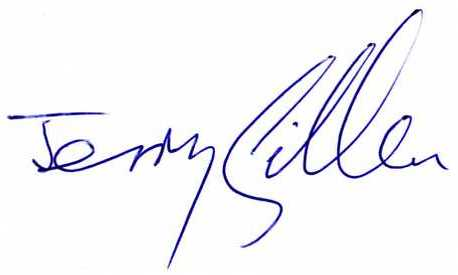 Jerry Siller